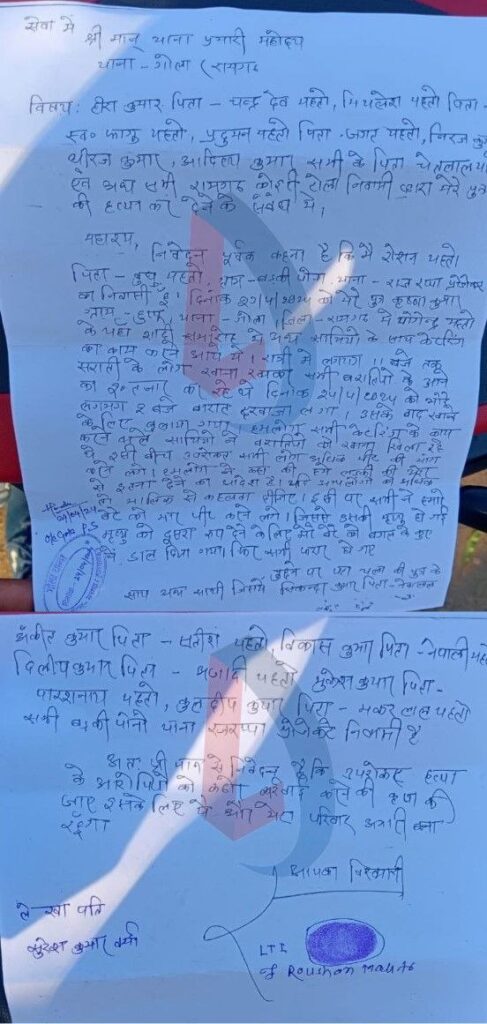 सेवा में
श्री मान् थाना प्रभारी महोदय
थाना - गोला (रामगढ़
विषय: हीरा कुमार पिता - चन्द्र देव महतो, मिथलेश महतो पिता -
स्व० फागु महतो, प्रदुमन महतो पिता - जगत महतो, निरज कु
धीरज कुमार, आदित्य कुमार सभी के पिता चेतलाल
एवं अन्य सभी रामगढ़ कोइरी टोला निवासी द्वारा मेरे पुत्र
की हत्या कर देने के संबंध में।
महाशय,
निवेदन पूर्वक कहना है कि मैं रोशन महतो
पिता - महतो, ग्राम - थाना - रजरप्पा प्रोजेक्ट
का निवासी हूँ। दिनांक को मेरा पुत्र कुमार
ग्राम - थाना - गोला, जिला - रामगढ़ में योगेन्द्र महतो
के यहाँ शादी समारोह में अन्य साथियों के साथ केटरिंग
का काम करने आये थे। रात्री में लगभग 11 बजे तक
सराती के लोग खाना खाकर सभी बरातियों के आने
का इन्तजार कर रहे थे दिनांक को भोरे
लगभग 2 बजे बारात दरवाजा लगा। उसके बाद खाने
के लिए बुलाया गया। हमलोग सभी केटरिंग के काम
करने वाले साथियों ने बरातियों को खाना खिला रहे
थे इसी बीच उपरोक्त सभी लोग अधिक की मांग
करने लगे। हमलोग ने कहा की हमे लड़की की
से इतना देने का आदेश है। यदि आपलोगों को अधिक
मालिक से कहलवा दीजिए। इसी पर सभी ने हमारे
बेटे को मार पीट करने लगे। जिससे उसकी मृत्यु हो गई
मृत्यु को दूसरा रूप देने के लिए मेरे बेटे को बगल के कुएं
में डाल दिया गया। फिर सभी फरार हो गए
पूछने पर पता चला की पुत्र के
साथ अन्य साथी कुमार पिता -
O/c Gola P.S
अंकीत कुमार पिता - सतीश महतो, विकास कुमार पिता - नेपाली महतो
दिलीप कुमार पिता - महतो मुकेश कुमार पिता -
पारसनाथ महतो, कुलदीप कुमार पिता - महतो
सभी थाना रजरप्पा प्रोजेक्ट निवासी है
अतः श्री मान से निवेदन है कि उपरोक्त हत्या
के आरोपियों को कठोर कार्रवाई करने की कृपा की
जाए इसके लिए मैं और मेरा परिवार आभारी बना
रहूँगा
आपका विश्वासी
LTI
of Roushan Mahto